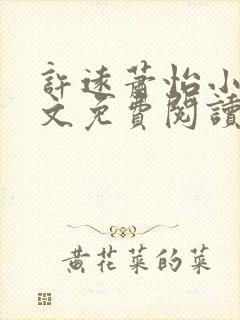 許遠蕭怡小
文免費閱讀
黃花菜的菜